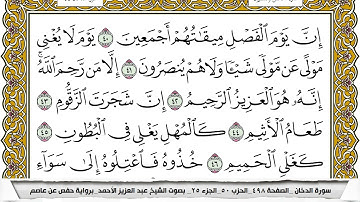 إِنَّ يَوْمَ الْفَصْلِ مِيقَاتُهُمْ أَجْمَعِينَ ٤٠ يَوْمَ لَا يُغْنِي
مَوْلًى عَن مَّوْلًى شَيْئًا وَلَا هُمْ يُنصَرُونَ ٤١ إِلَّا مَن رَّحِمَ اللَّهُ
إِنَّهُ هُوَ الْعَزِيزُ الرَّحِيمُ ٤٢ إِنَّ شَجَرَتَ الزَّقُّومِ ٤٣
طَعَامُ الْأَثِيمِ ٤٤ كَالْمُهْلِ يَغْلِي فِي الْبُطُونِ ٤٥
كَغَلْيِ الْحَمِيمِ ٤٦ خُذُوهُ فَاعْتِلُوهُ إِلَىٰ سَوَاءِ
سورة الدخان _ الصفحة ٤٩٨ _ الحزب ٥٠ _ الجزء ٢٥ _ بصوت الشيخ عبد العزيز الأحمد _ برواية حفص عن عاصم